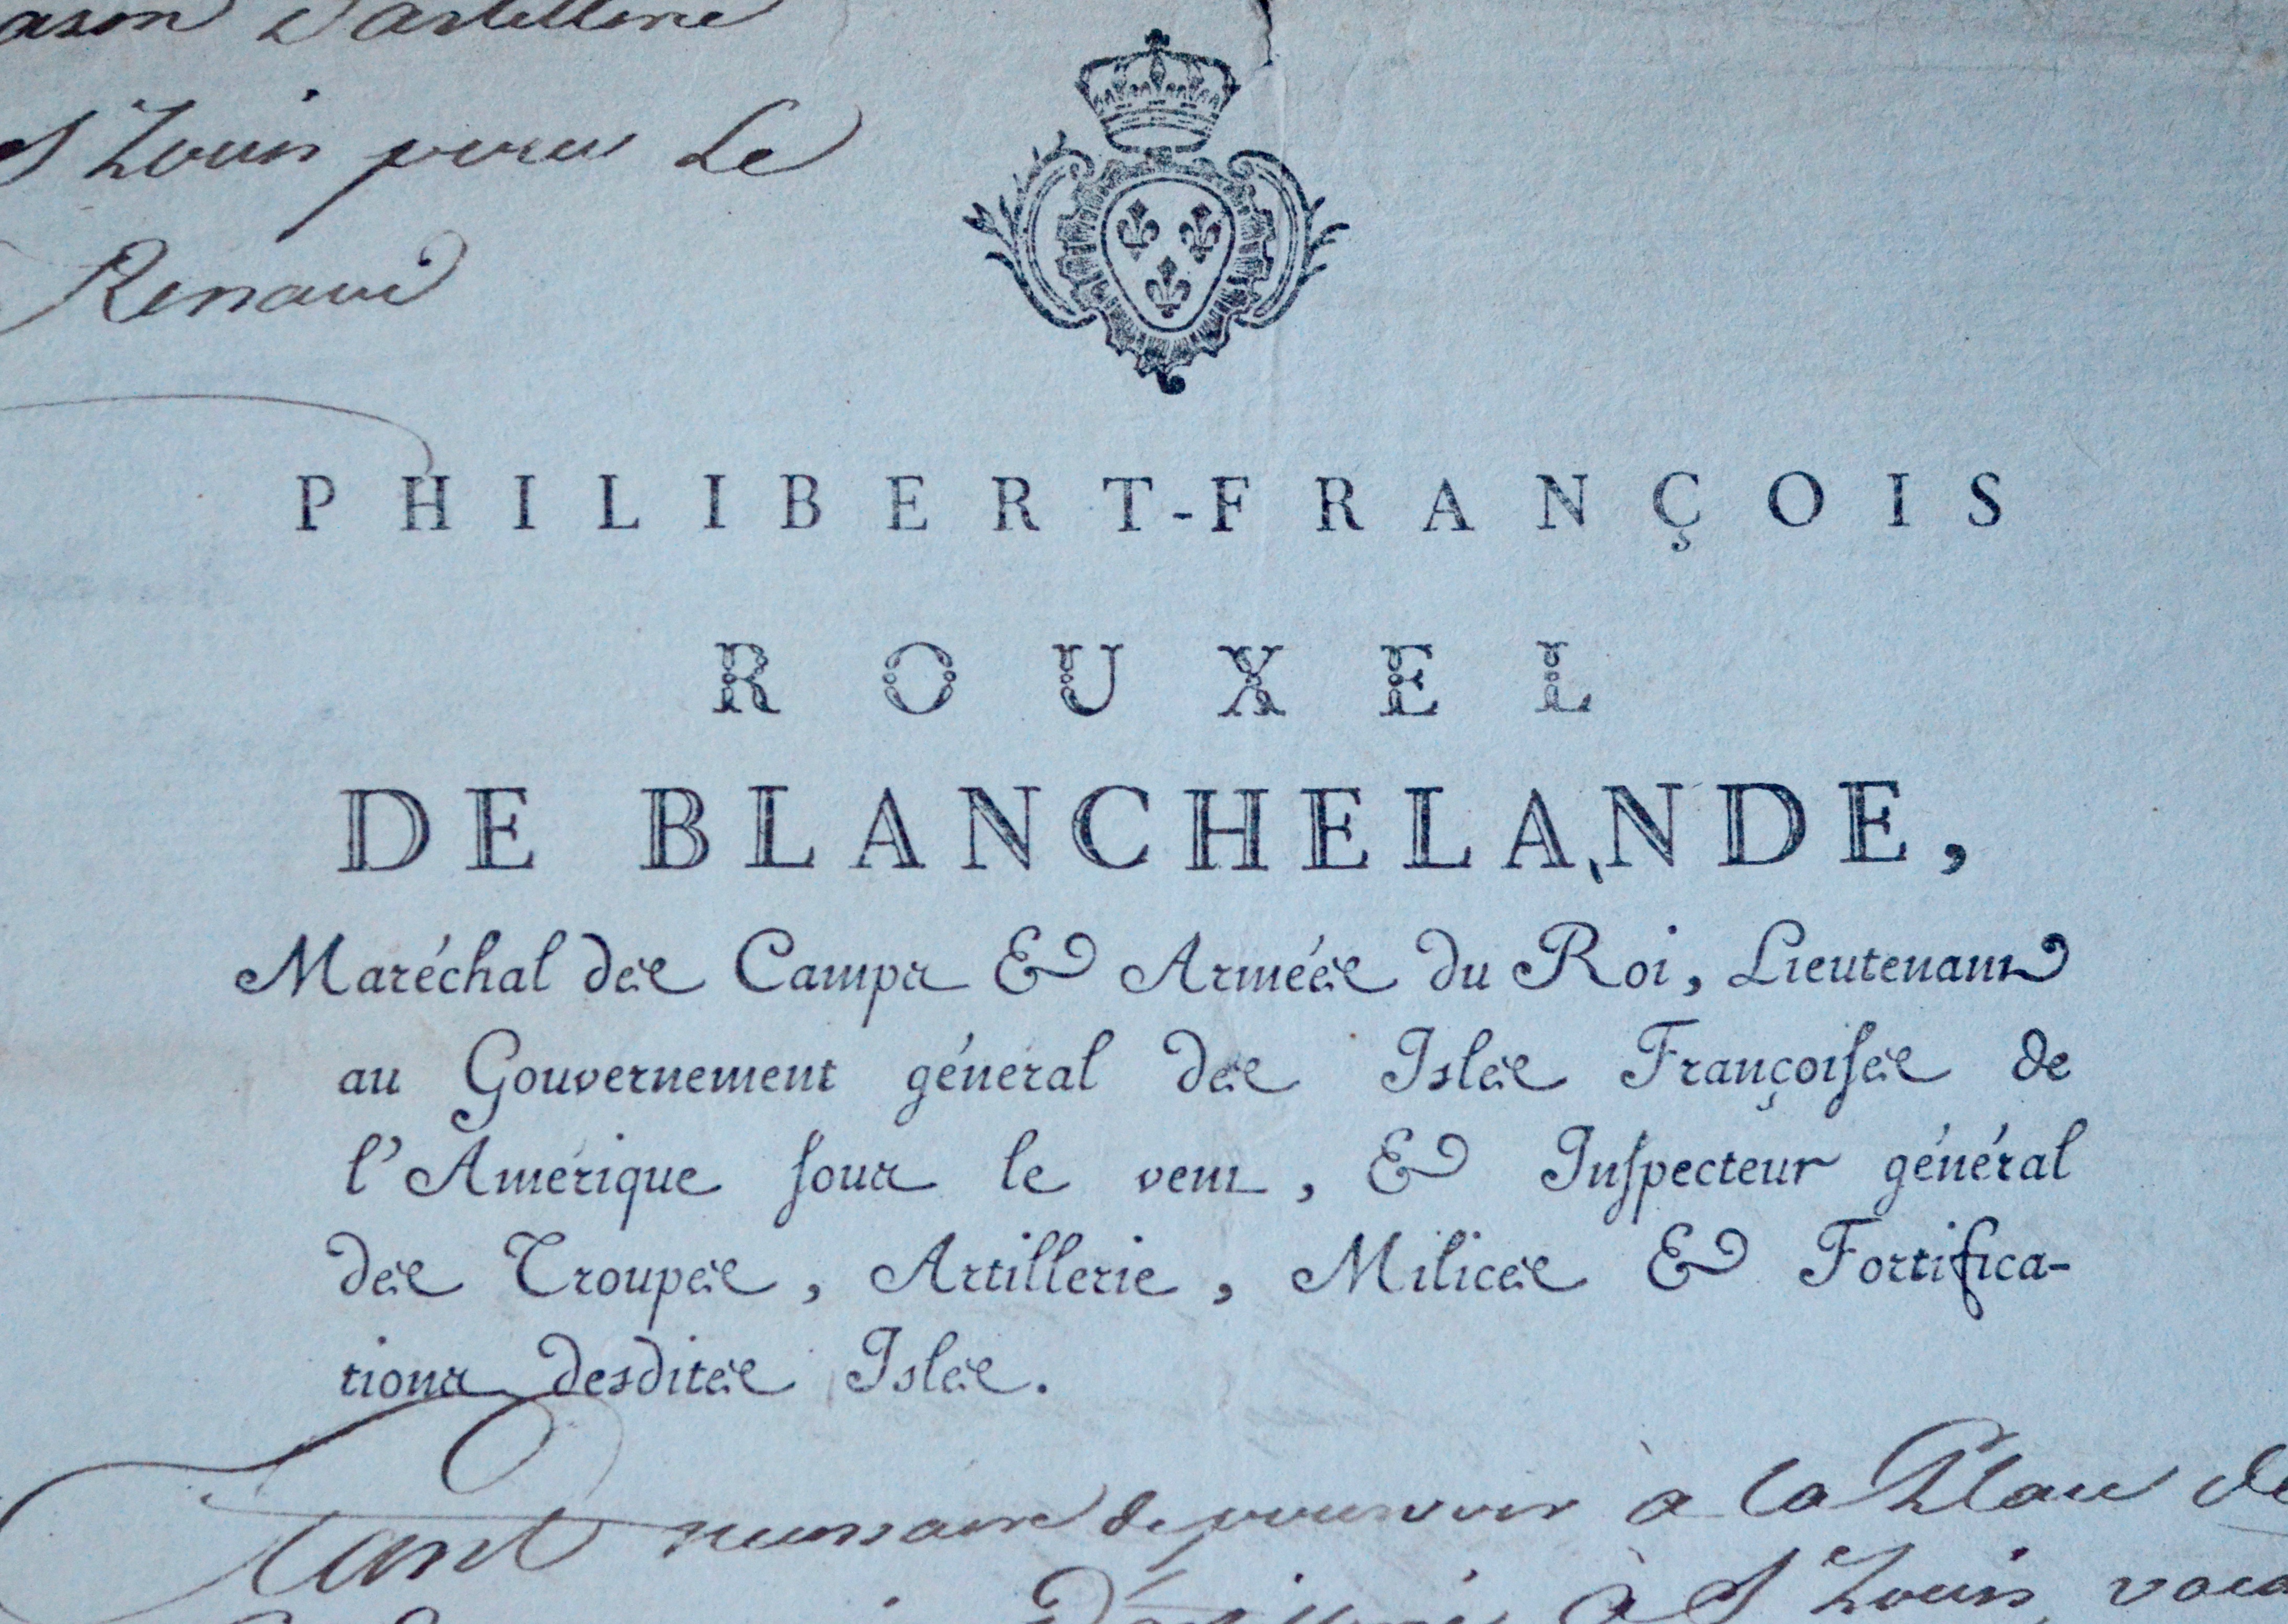 d'artillerie
St Louis pour Le
Renaud
PHILIBERT-FRANÇOIS
ROUXEL
DE BLANCHELANDE,
Maréchal des Camps & Armées du Roi, Lieutenant
au Gouvernement général des Isles Françoiſes de
l'Amérique ſous le vent, & Inſpecteur général
des Troupes, Artillerie, Milices & Fortifica-
tions desdites Isles.
Etant necessaire de pourvoir à la Place de
D'artillerie à St Louis